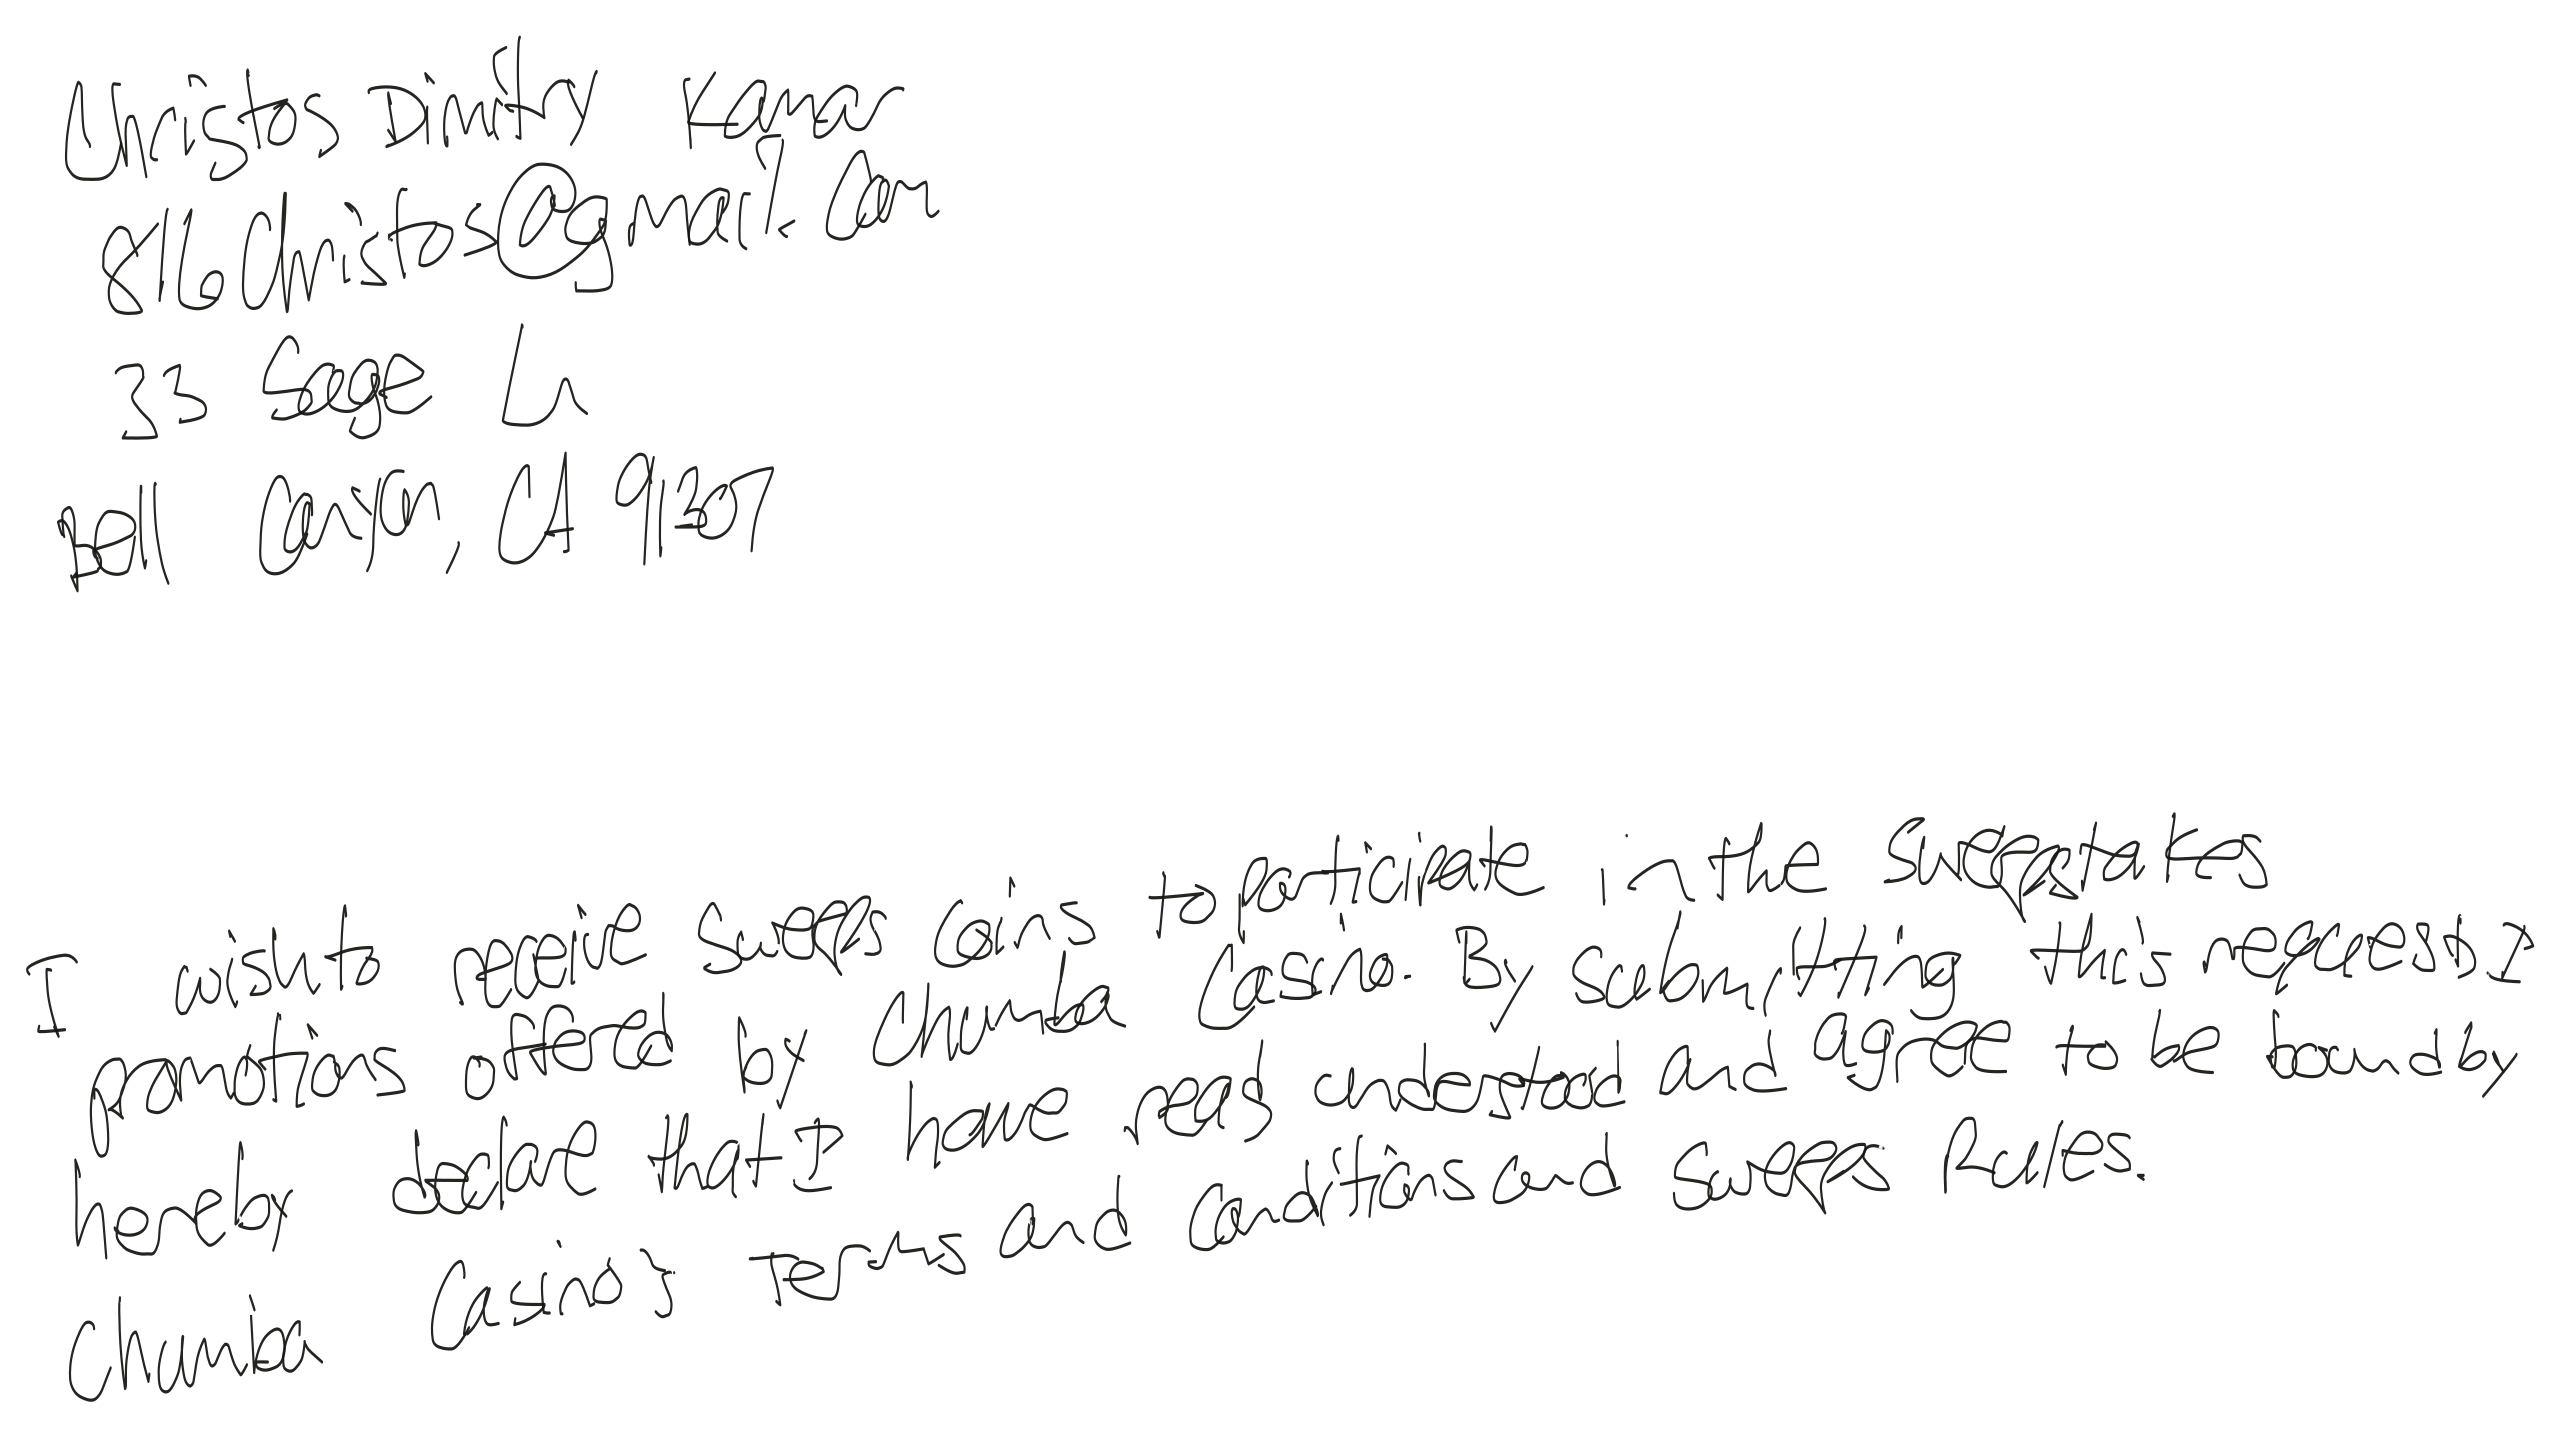 Christos Dimitry Kamar
816Christos@gmail.com
33 Sage Ln
Bell Canyon, CA 91307
I wish to receive sweeps coins to participate in the sweepstakes
promotions offered by Chumba Casino. By submitting this request, I
hereby declare that I have read understood and agree to be bound by
Chumba Casino's Terms and Conditions and Sweeps Rules.